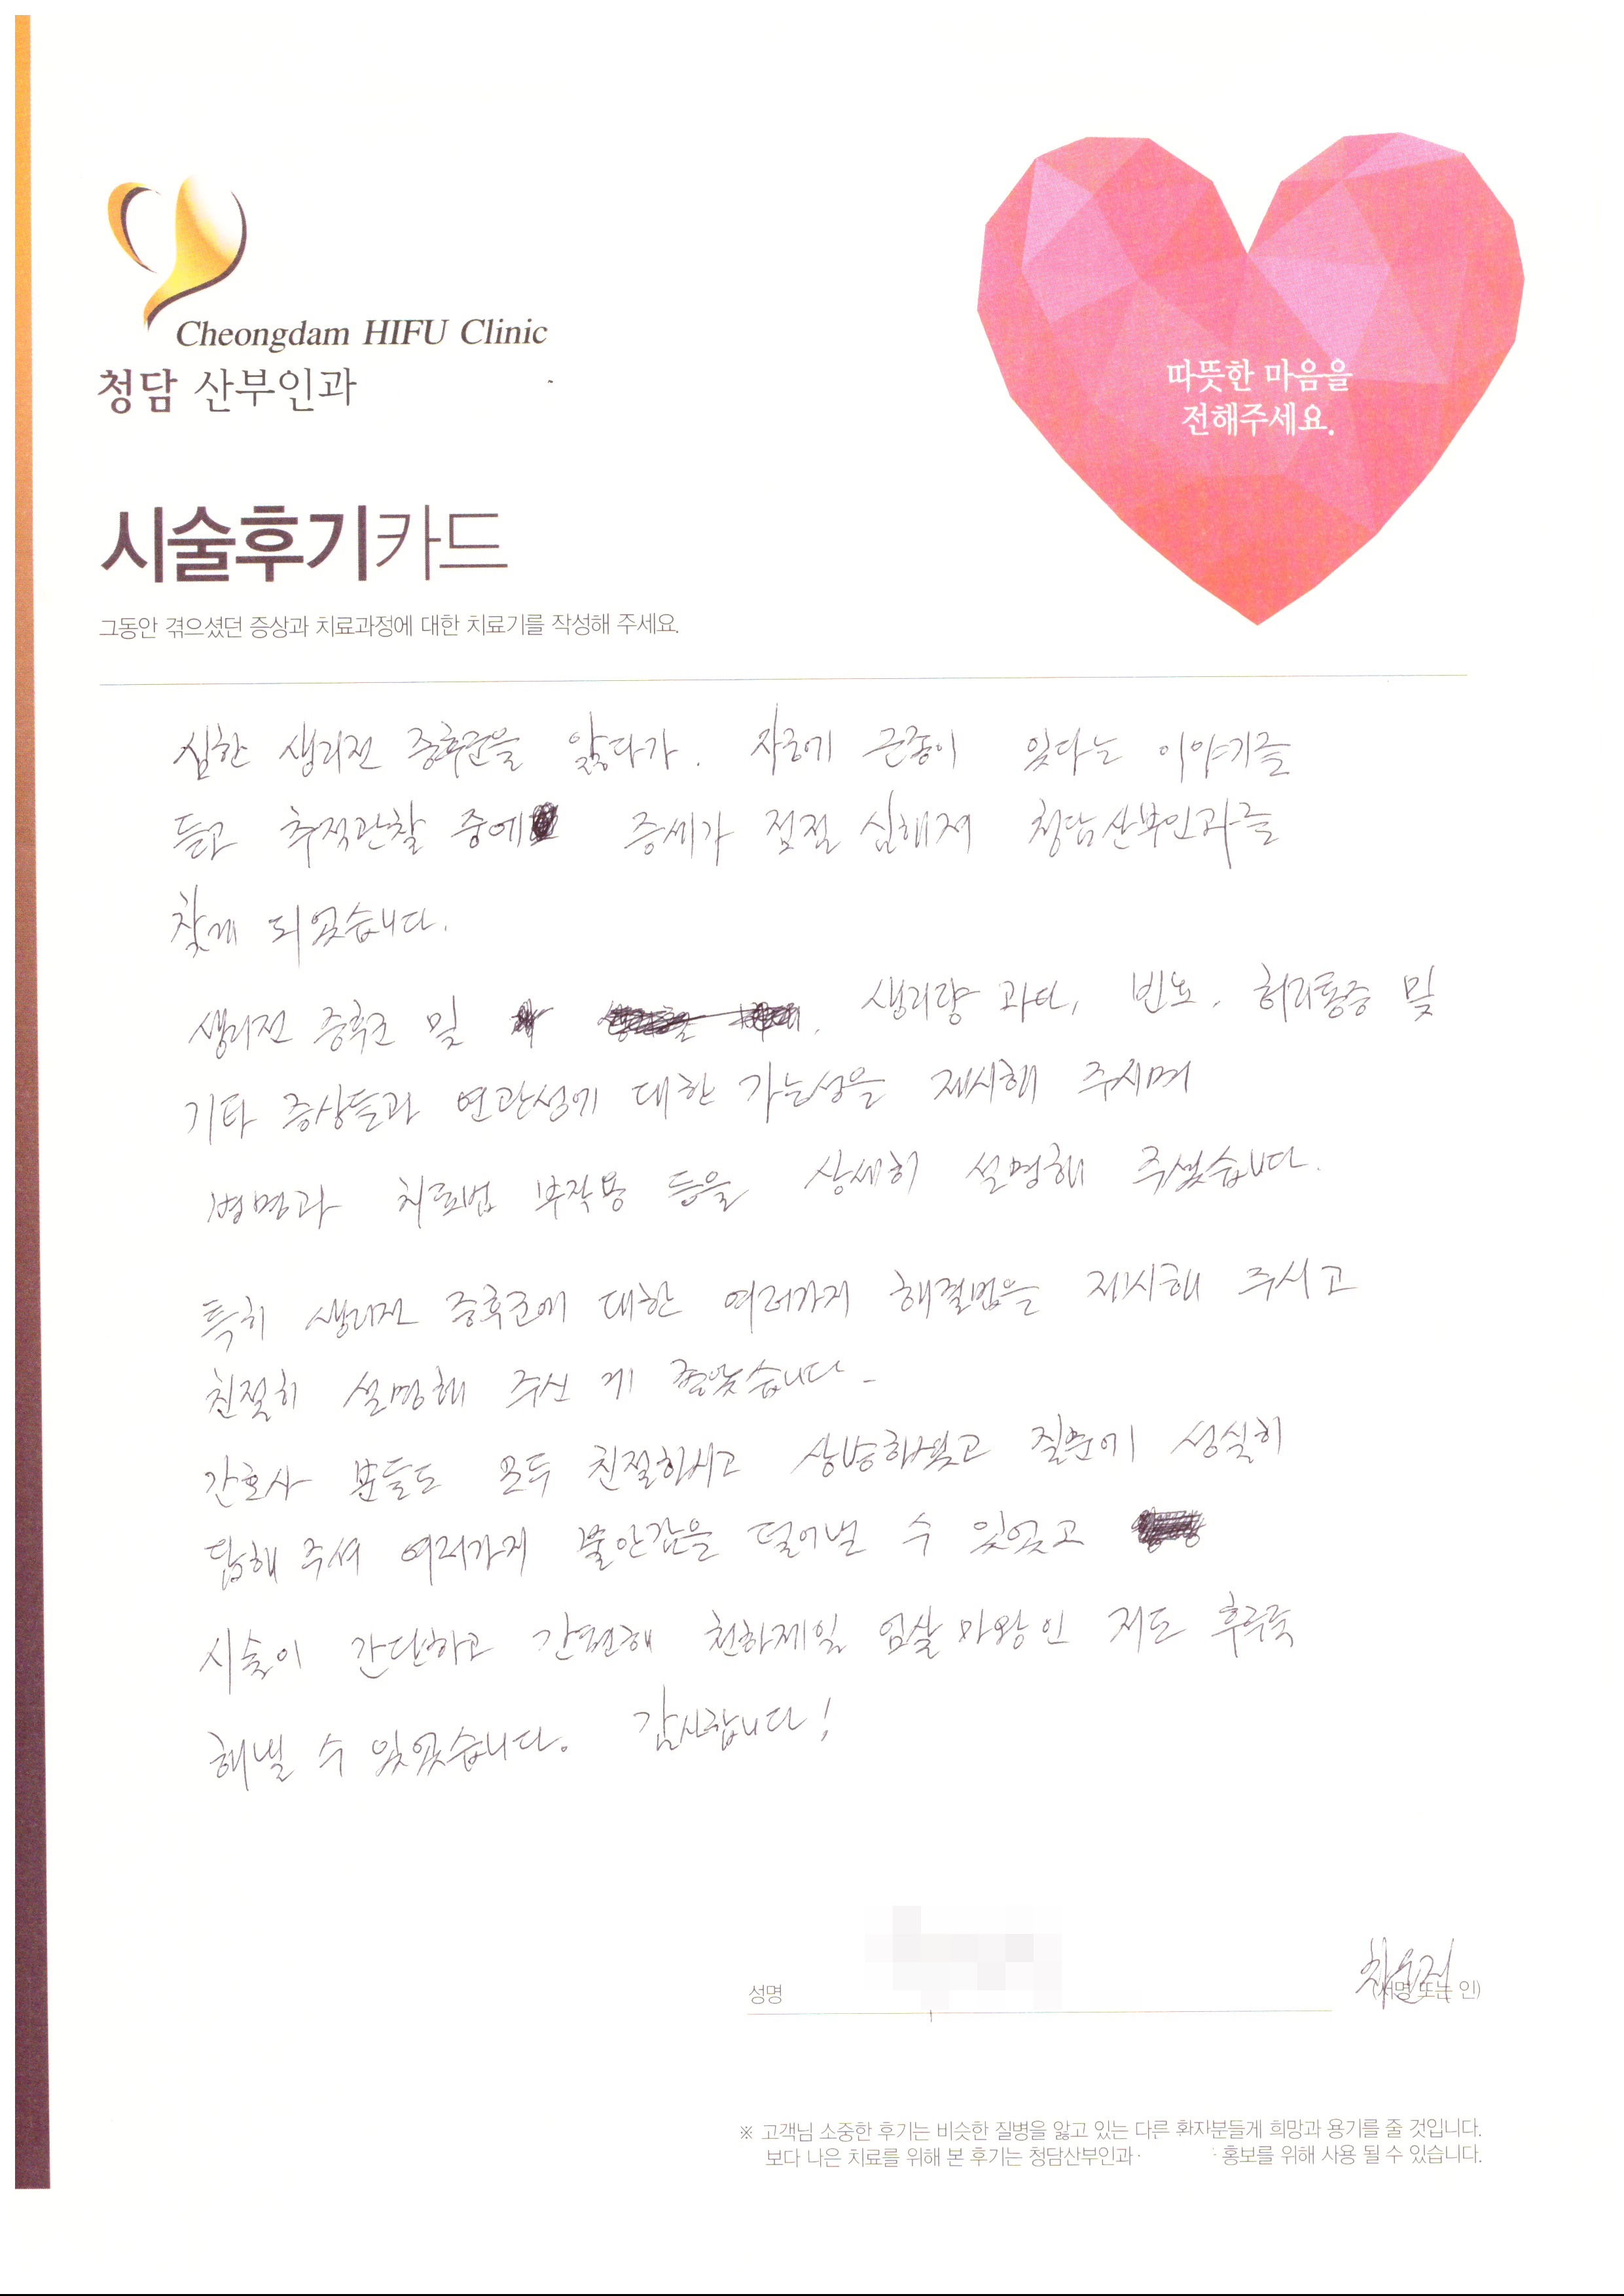 Cheongdam HIFU Clinic
청담 산부인과
따뜻한 마음을
전해주세요.
시술후기카드
그동안 겪으셨던 증상과 치료과정에 대한 치료기를 작성해 주세요.
심한 생리전 증후군을 앓다가. 자궁에 근종이 있다는 이야기를
듣고 추적관찰 중에 증세가 점점 심해져 청담산부인과를
찾게 되었습니다.
생리전 증후군 및 생리량 과다, 빈뇨, 허리통증 및
기타 증상들과 연관성에 대한 가능성을 제시해 주시며
병명과 치료법 부작용 등을 상세히 설명해 주셨습니다.
특히 생리전 증후군에 대한 여러가지 해결법을 제시해 주시고
친절히 설명해 주신 게 좋았습니다.
간호사 분들도 모두 친절하시고 상냥하셨고 질문에 성실히
답해 주셔 여러가지 불안감을 덜어낼 수 있었고
시술이 간단하고 간편해 천하제일 엄살 마왕인 저도 후루룩
해낼 수 있었습니다. 감사합니다!
성명 (서명 또는 인)
※ 고객님 소중한 후기는 비슷한 질병을 앓고 있는 다른 환자분들게 희망과 용기를 줄 것입니다.
보다 나은 치료를 위해 본 후기는 청담산부인과· 홍보를 위해 사용 될 수 있습니다.